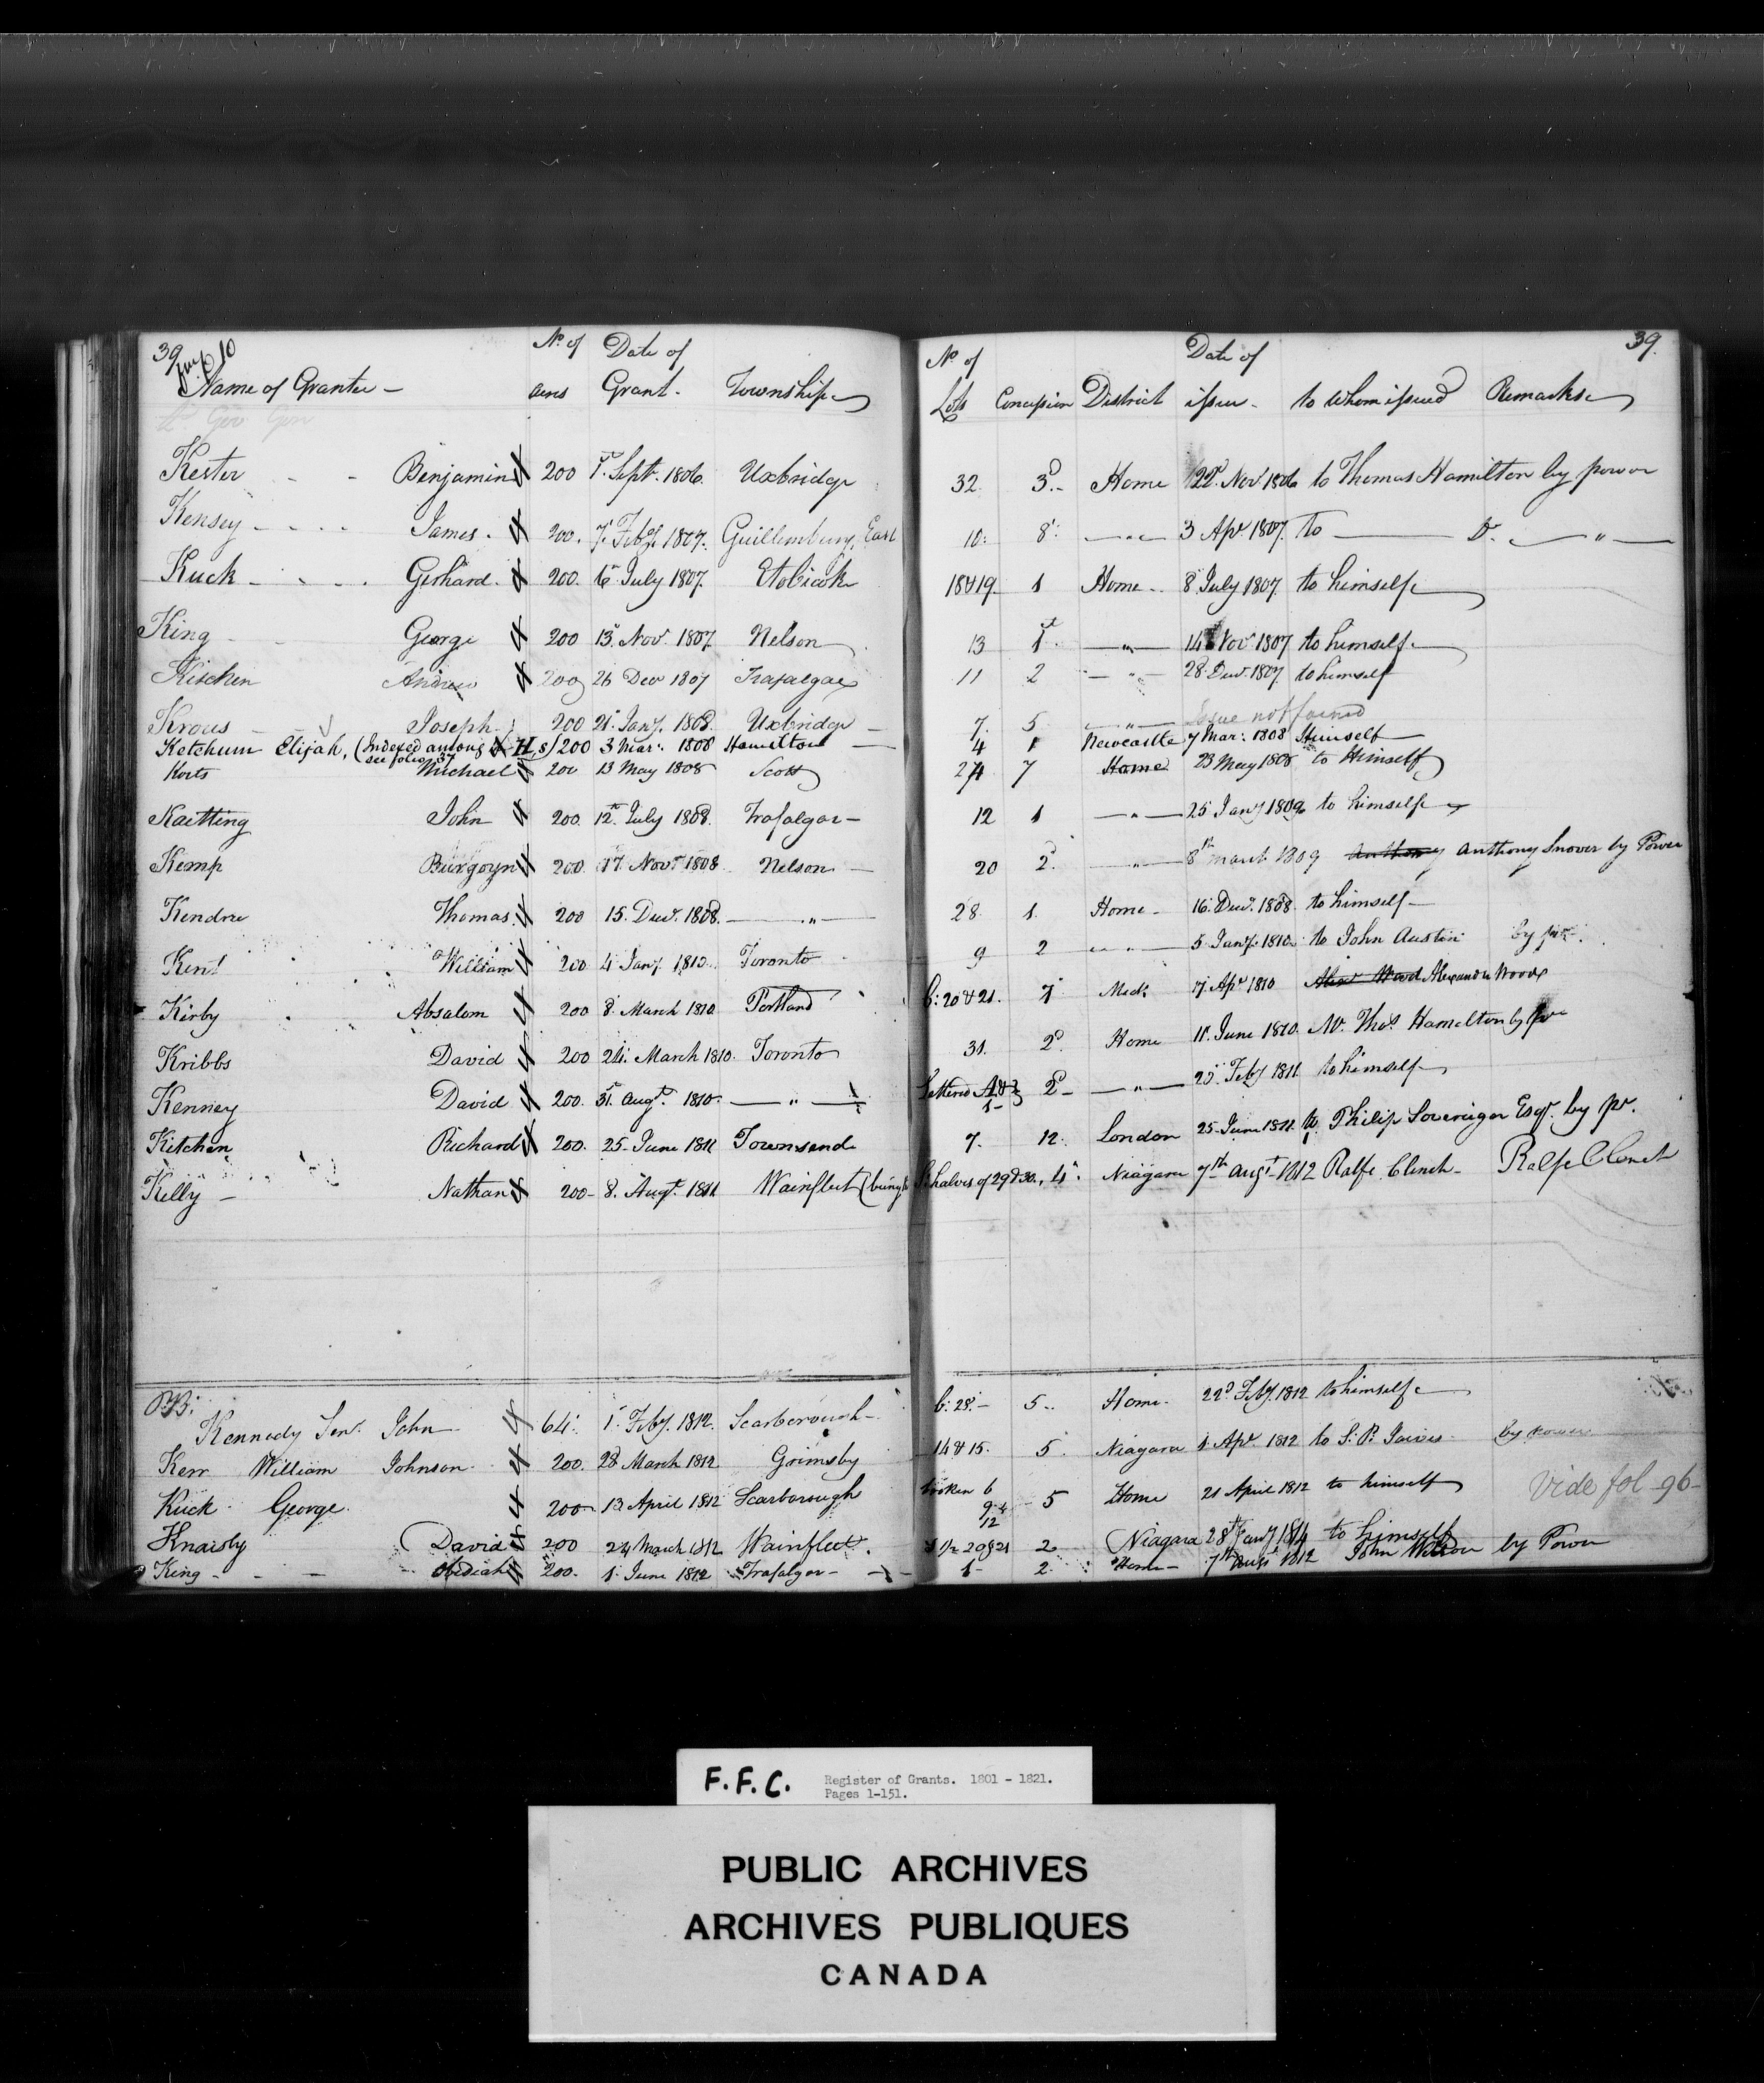 39 39.
No. of Date of No. of Date of
Name of Grantee — acres Grant. Township Lots Concession District issue - to whom issued Remarks
Kester - - Benjamin 200 1st Septr. 1806. Uxbridge 32. 3d.- Home 22d. Novr. 1806 to Thomas Hamilton by power
Kensey - - - - James. 200. 7. Feby. 1807. Guillimbury, East 10: 8: —„— 3 Apr. 1807. to — Do. —„—
Kuck - - - - Gerhard. 200. 6th July 1807. Etobicoke 18 & 19. 1 Home - 8 July 1807 to himself
King - George 200 13th. Novr. 1807. Nelson 13 1st. —„— 14 Novr 1807 to himself.
Kischen Andrew 200 26 Decr 1807 Trafalgar 11 2 —„— 28 Decr. 1807 to himself
Krous - Joseph 200 21st. Jany. 1808. Uxbridge — 7. 5 —„— Issue not found
Ketchum Elijah, (Indexed among H s) 200 3 Mar: 1808 Hamilton — 4 1 Newcastle 7 Mar: 1808 Himself —
see folio 37
Korts Michael 200 13 May 1808 Scott 24 7 Home 23 May 1808 to Himself
Kaitting John 200. 12th. July 1808. Trafalgar — 12 1 —„— 25 Jany 1809 to himself
Kemp Burgoyn 200. 17. Novr 1808. Nelson — 20 2d. —„— 8th March 1809 Anthony Anthony Snover by Power
Kendree Thomas. 200 15. Decr. 1808. —„— 28. 1. Home - 16. Decr. 1808. to himself —
Kent William 200 4 Jany 1810. Toronto 9 2 —„— 5 Jany. 1810 to John Austin by pr.
Kirby Absalom 200 8. March 1810 Portland b: 20 & 21. 7 Midd. 17. Apr 1810 Alexr Wood Alexander Wood
Kribbs David 200 24: March 1810. Toronto 31. 2d. Home 11. June 1810. Mr. Thos. Hamilton by pr
Kenney David 200. 31st. Augt. 1810. —„— Lettered A & 2d — —„— 25 Feby 1811 to himself
1-
Kitchen Richard 200. 25 June 1811 Townsend 7. 12. London 25 June 1811 to Philip Sovereign Esqr. by pr.
Kelly — Nathan 200 - 8. Augt. 1811 Wainfleet (being S. halves of 29 & 30., 4th. Niagara 7th Augt 1812 Ralfe Clench — Ralfe Clench
Kennedy Senr. John 64. 1. Feby. 1812. Scarborough - b: 28. - 5.. Home. 22d Feby. 1812 to himself
Kerr William Johnson 200. 28 March 1812 Grimsby 14 & 15. 5. Niagara 1 Apr. 1812 to S. P. Jarvis. by power
Kuck. George. 200 - 13 April 1812 Scarborough broken 6 5 Home 21 April 1812 to himself Vide fol - 96 -
9.
12
Knaisly David 200 24 March 1812 Wainfleet. 1/2 20 & 21 2 Niagara 28th Jany 1814 to himself
King - - — Obediah 200. 1. June 1812 Trafalgar - 1 - 2. Home - 7th Augt 1812 John Wilson by Power
F.F.C. Register of Grants. 1801 - 1821.
Pages 1-151.
PUBLIC ARCHIVES
ARCHIVES PUBLIQUES
CANADA